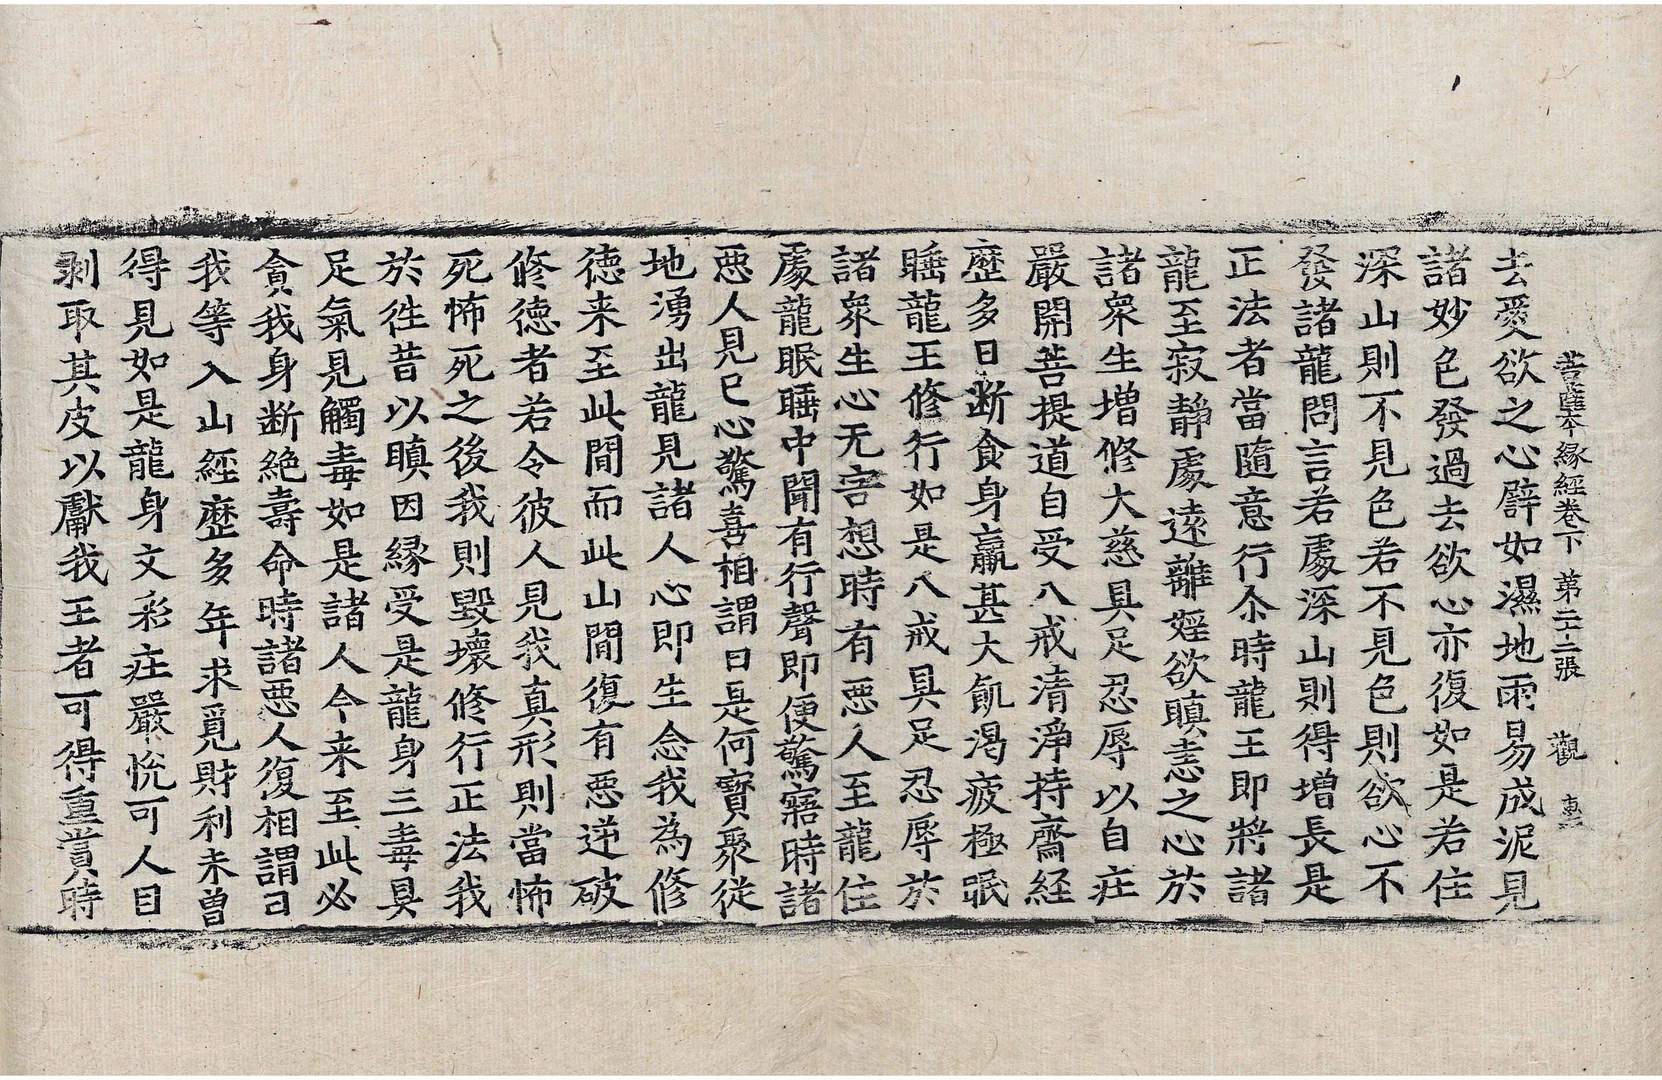 菩薩本緣經卷下 第二十二張 觀
去愛欲之心辟如濕地雨易成泥見
諸妙色發過去欲心亦復如是若住
深山則不見色若不見色則欲心不
發諸龍問言若處深山則得增長是
正法者當隨意行尒時龍王即將諸
龍至寂靜處遠離婬欲瞋恚之心於
諸衆生增修大慈具足忍辱以自庄
嚴開菩提道自受八戒清淨持齋経
歷多日斷食身羸甚大飢渴疲極眠
睡龍王修行如是八戒具足忍辱於
諸衆生心无害想時有惡人至龍住
處龍眠睡中聞有行聲即便驚寤時諸
惡人見已心驚喜相謂曰是何寶聚従
地湧出龍見諸人心即生念我為修
徳来至此間而此山間復有惡逆破
修徳者若令彼人見我真形則當怖
死怖死之後我則毀壞修行正法我
於徃昔以瞋因緣受是龍身三毒具
足氣見觸毒如是諸人今来至此必
貪我身斷絶壽命時諸惡人復相謂曰
我等入山經歷多年求覓財利未曾
得見如是龍身文彩庄嚴悅可人目
剥取其皮以獻我王者可得重賞時